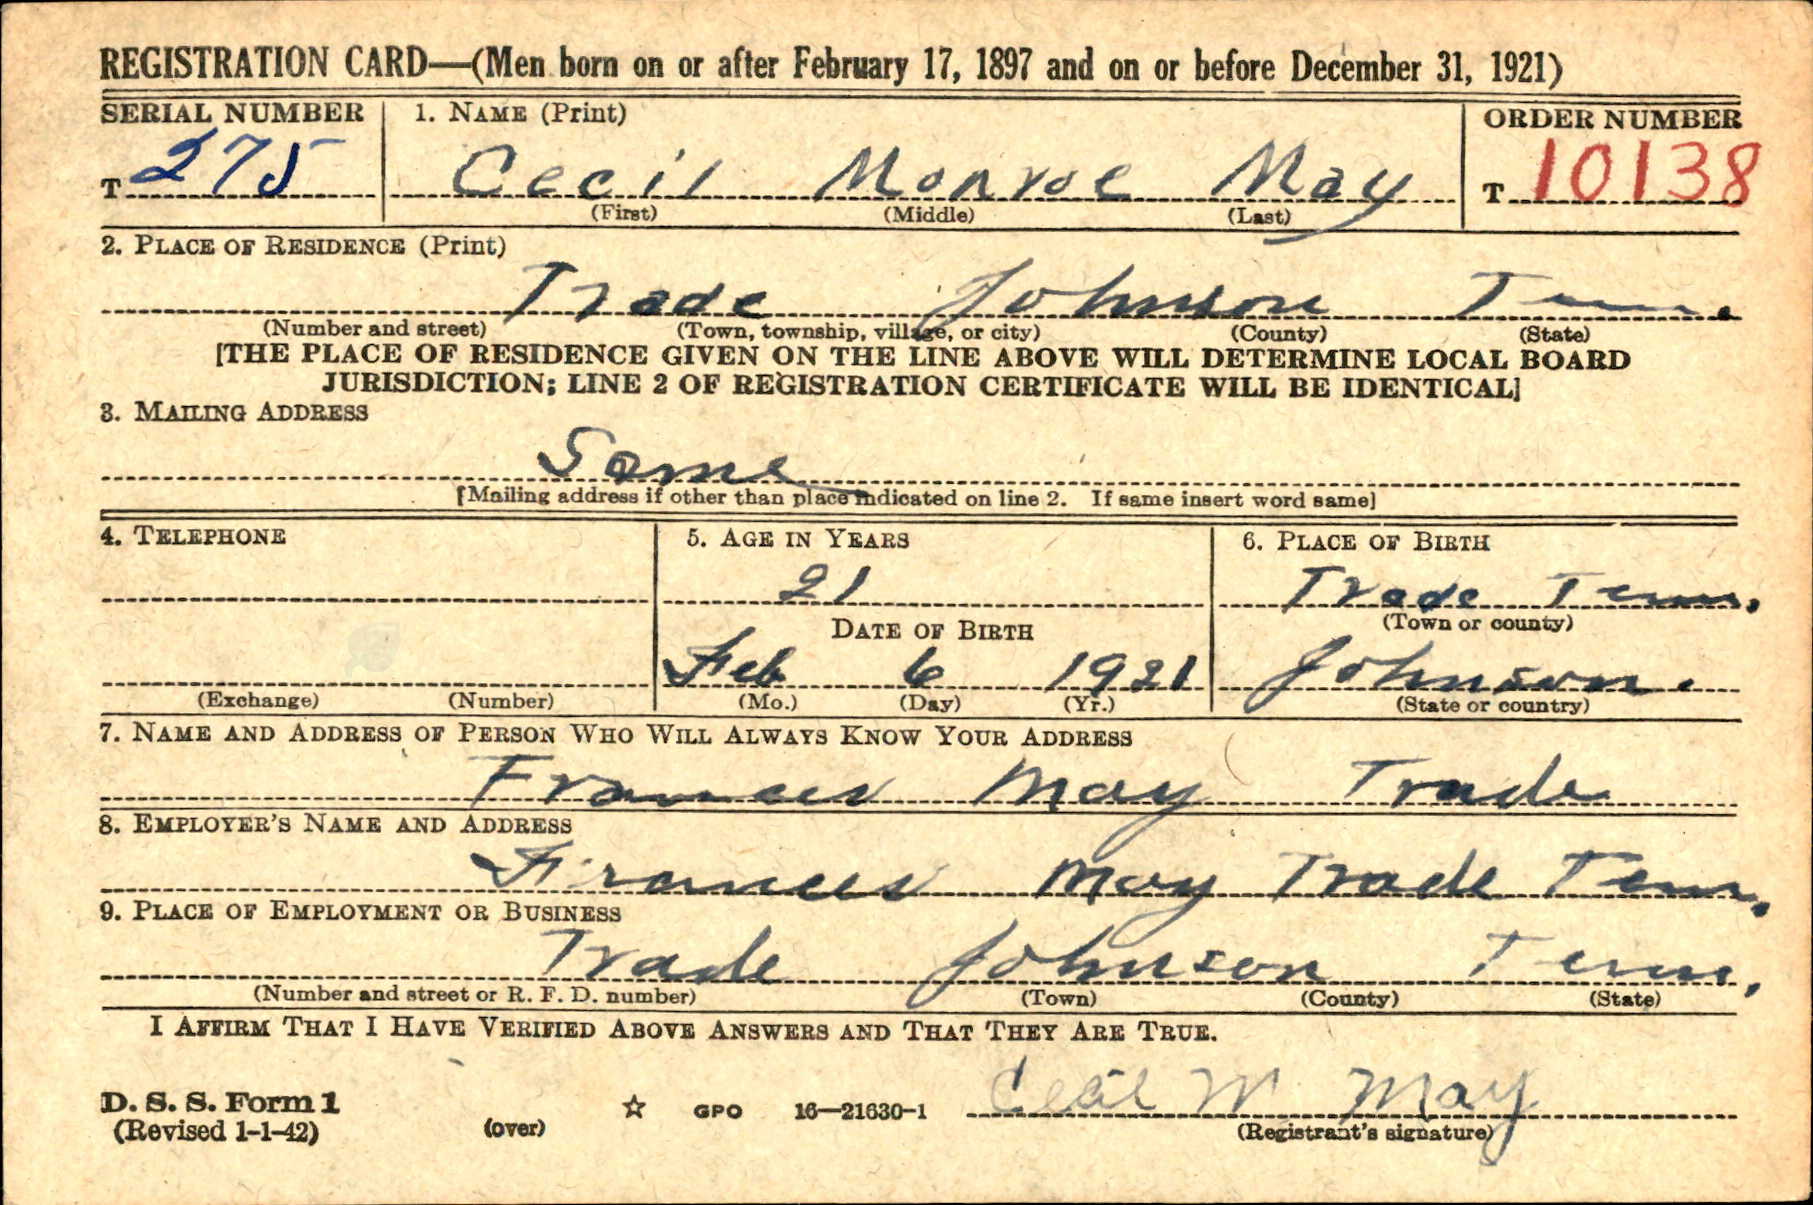 REGISTRATION CARD—(Men born on or after February 17, 1897 and on or before December 31, 1921)
SERIAL NUMBER 1. NAME (Print) ORDER NUMBER
T 275 Cecil Monroe May T 10138
(First) (Middle) (Last)
2. PLACE OF RESIDENCE (Print)
Trade Johnson Tenn.
(Number and street) (Town, township, village, or city) (County) (State)
[THE PLACE OF RESIDENCE GIVEN ON THE LINE ABOVE WILL DETERMINE LOCAL BOARD
JURISDICTION; LINE 2 OF REGISTRATION CERTIFICATE WILL BE IDENTICAL]
3. MAILING ADDRESS
Same
[Mailing address if other than place indicated on line 2. If same insert word same]
4. TELEPHONE 5. AGE IN YEARS 6. PLACE OF BIRTH
21 Trade Tenn.
DATE OF BIRTH (Town or county)
Feb 6 1921 Johnson.
(Exchange) (Number) (Mo.) (Day) (Yr.) (State or country)
7. NAME AND ADDRESS OF PERSON WHO WILL ALWAYS KNOW YOUR ADDRESS
Frances May Trade
8. EMPLOYER'S NAME AND ADDRESS
Frances May Trade Tenn.
9. PLACE OF EMPLOYMENT OR BUSINESS
Trade Johnson Tenn.
(Number and street or R. F. D. number) (Town) (County) (State)
I AFFIRM THAT I HAVE VERIFIED ABOVE ANSWERS AND THAT THEY ARE TRUE.
D. S. S. Form 1 Cecil M May
(Revised 1-1-42) (over) ☆ GPO 16—21630-1 (Registrant's signature)